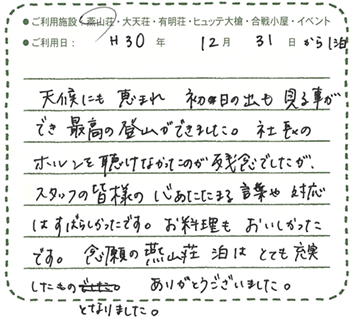 ●ご利用施設 燕山荘・大天荘・有明荘・ヒュッテ大槍・合戦小屋・イベント
●ご利用日： H30年 12月 31日から1泊
天候にも 恵まれ 初日の出も 見る事が
でき 最高の登山ができました。社長の
ホルンを聴けなかったのが残念でしたが、
スタッフの皆様の 心あたたまる 言葉や 対応
はすばらしかったです。お料理も おいしかった
です。念願の 燕山荘 泊は とても 充実
したもの ありがとうございました。
となりました。